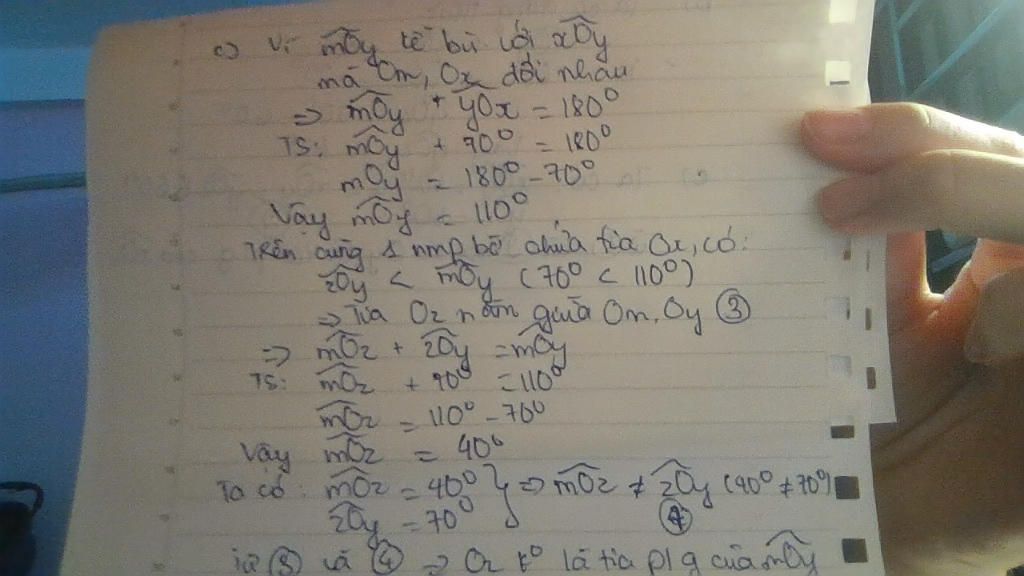 c) Vì mÔy kề bù với xÔy
mà Om, Ox đối nhau
⇒ mÔy + yÔx = 180⁰
TS: mÔy + 70⁰ = 180⁰
mÔy = 180⁰ - 70⁰
Vậy mÔy = 110⁰
Trên cùng 1 nmp bờ chứa tia Ox, có:
zÔy < mÔy (70⁰ < 110⁰)
⇒ Tia Oz nằm giữa Om, Oy ③
⇒ mÔz + zÔy = mÔy
TS: mÔz + 70⁰ = 110⁰
mÔz = 110⁰ - 70⁰
Vậy mÔz = 40⁰
Ta có: mÔz = 40⁰ } ⇒ mÔz ≠ zÔy (40⁰ ≠ 70⁰)
zÔy = 70⁰ ④
Từ ③ và ④ ⇒ Oz k⁰ là tia p/g của mÔy